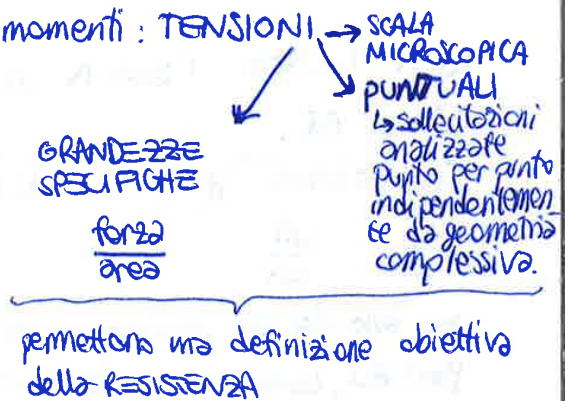 momenti : TENSIONI → SCALA
MICROSCOPICA
PUNTUALI
↳ sollecitazioni
analizzate
punto per punto
indipendentemen_
te da geometria
complessiva.
GRANDEZZE
SPECIFICHE
forza
area
permettono una definizione obiettiva
della RESISTENZA